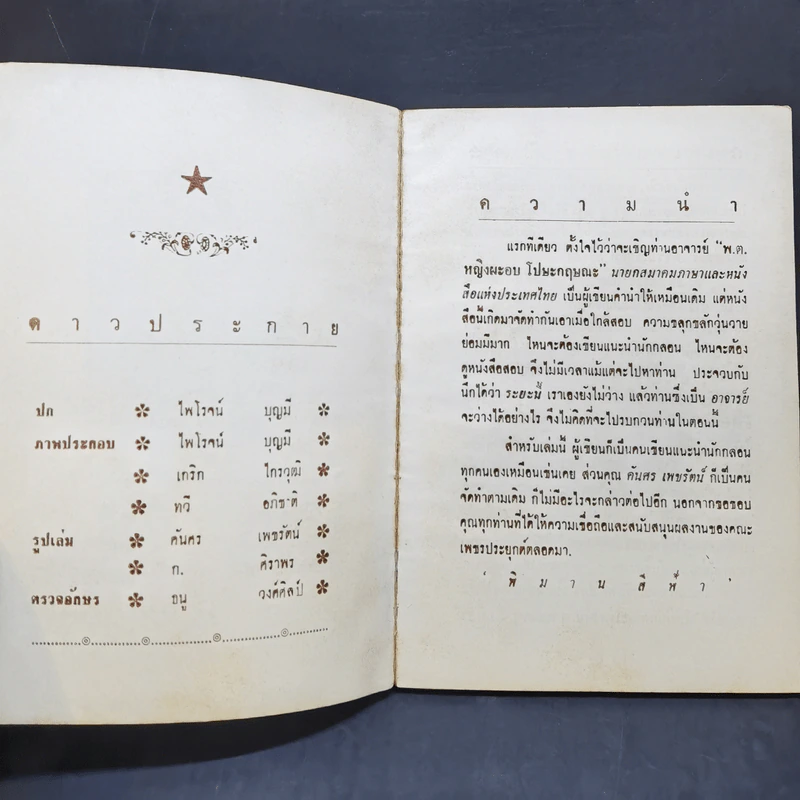 ดาวประกาย
ปก ไพโรจน์ บุญมี
ภาพประกอบ ไพโรจน์ บุญมี
เกริก ไกรวุฒิ
ทวี อภิชาติ
รูปเล่ม คันศร เพชรรัตน์
ก. ศิราพร
ตรวจอักษร ธนู วงศ์ศิลป์
ความนำ
แรกทีเดียว ตั้งใจไว้ว่าจะเชิญท่านอาจารย์ "พ.ต.
หญิงผะอบ โปษะกฤษณะ" นายกสมาคมภาษาและหนัง
สือแห่งประเทศไทย เป็นผู้เขียนคำนำให้เหมือนเดิม แต่หนัง
สือนี้เกิดมาจัดทำกันเอาเมื่อใกล้สอบ ความขลุกขลักวุ่นวาย
ย่อมมีมาก ไหนจะต้องเขียนแนะนำนักกลอน ไหนจะต้อง
ดูหนังสือสอบ จึงไม่มีเวลาแม้แต่จะไปหาท่าน ประจวบกับ
นึกได้ว่า ระยะนี้ เราเองยังไม่ว่าง แล้วท่านซึ่งเป็น อาจารย์
จะว่างได้อย่างไร จึงไม่คิดที่จะไปรบกวนท่านในตอนนี้
สำหรับเล่มนี้ ผู้เขียนก็เป็นคนเขียนแนะนำนักกลอน
ทุกคนเองเหมือนเช่นเคย ส่วนคุณ คันศร เพชรรัตน์ ก็เป็นคน
จัดทำตามเดิม ก็ไม่มีอะไรจะกล่าวต่อไปอีก นอกจากขอขอบ
คุณทุกท่านที่ได้ให้ความเชื่อถือและสนับสนุนผลงานของคณะ
เพชรประยุกต์ตลอดมา.
'พิมานสีฟ้า'